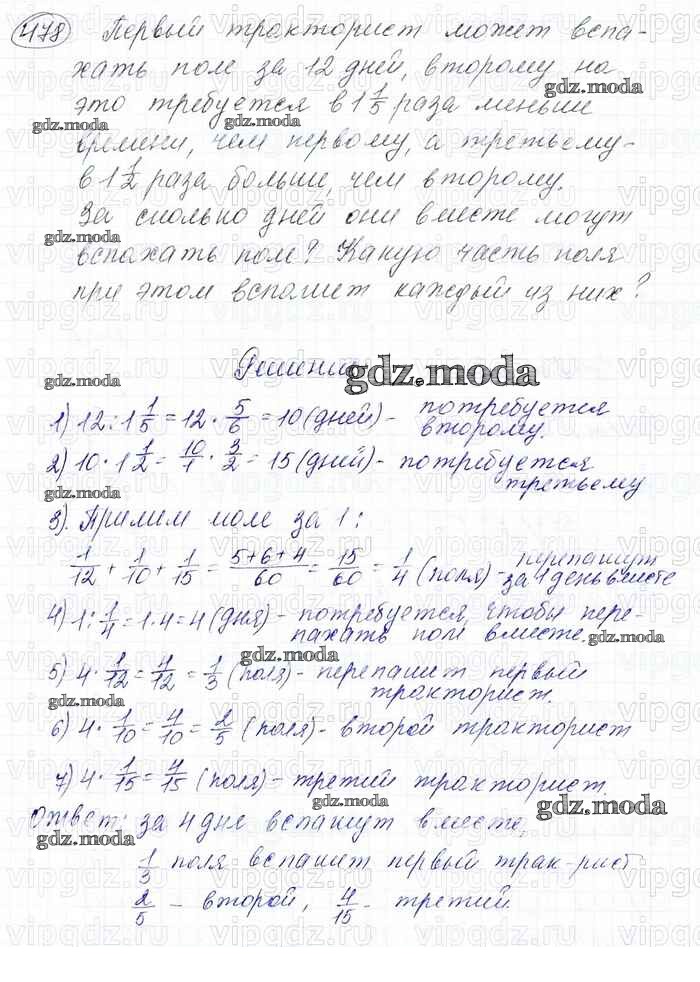 478 Первый тракторист может вспа-
хать поле за 12 дней, второму на
это требуется в 1 1/5 раза меньше
времени, чем первому, а третьему-
в 1 1/2 раза больше, чем второму.
За сколько дней они вместе могут
вспахать поле? Какую часть поля
при этом вспашет каждый из них?
Решение
gdz.moda
1) 12 : 1 1/5 = 12 · 5/6 = 10 (дней) - потребуется
второму.
2) 10 · 1 1/2 = 10/1 · 3/2 = 15 (дней) - потребуется
третьему
3). Примем поле за 1:
1/12 + 1/10 + 1/15 = 5+6+4/60 = 15/60 = 1/4 (поля) - перепашут
за 1 день вместе
4) 1 : 1/4 = 1 · 4 = 4 (дня) - потребуется, чтобы пере-
пахать поле вместе.
5) 4 · 1/12 = 4/12 = 1/3 (поля) - перепашит первый
тракторист.
6) 4 · 1/10 = 4/10 = 2/5 (поля) - второй тракторист
7) 4 · 1/15 = 4/15 (поля) - третий тракторист.
Ответ: за 4 дне вспашут вместе,
1/3 поля вспашит первый трак-рист
2/5 - второй, 4/15 - третий.